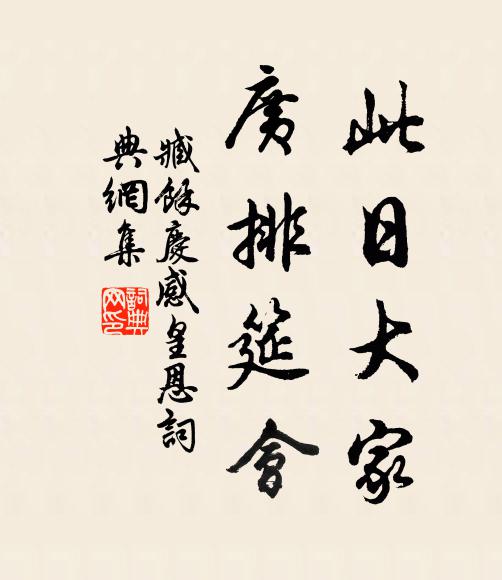 此日大家
廣排筵會
臧餘慶感皇恩詞
典網集
詞典網印